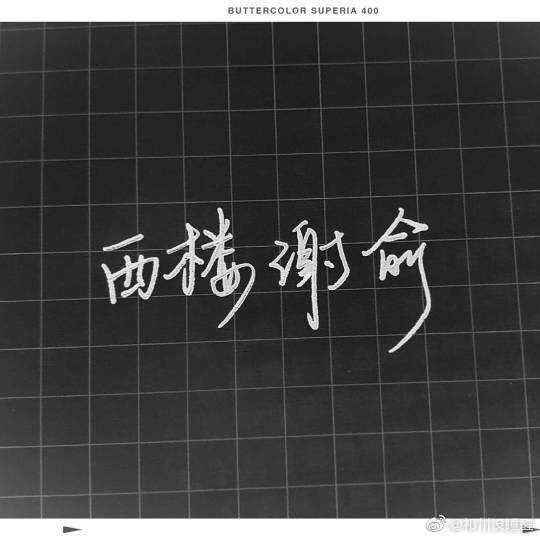 BUTTERCOLOR SUPERIA 400
西楼谢俞